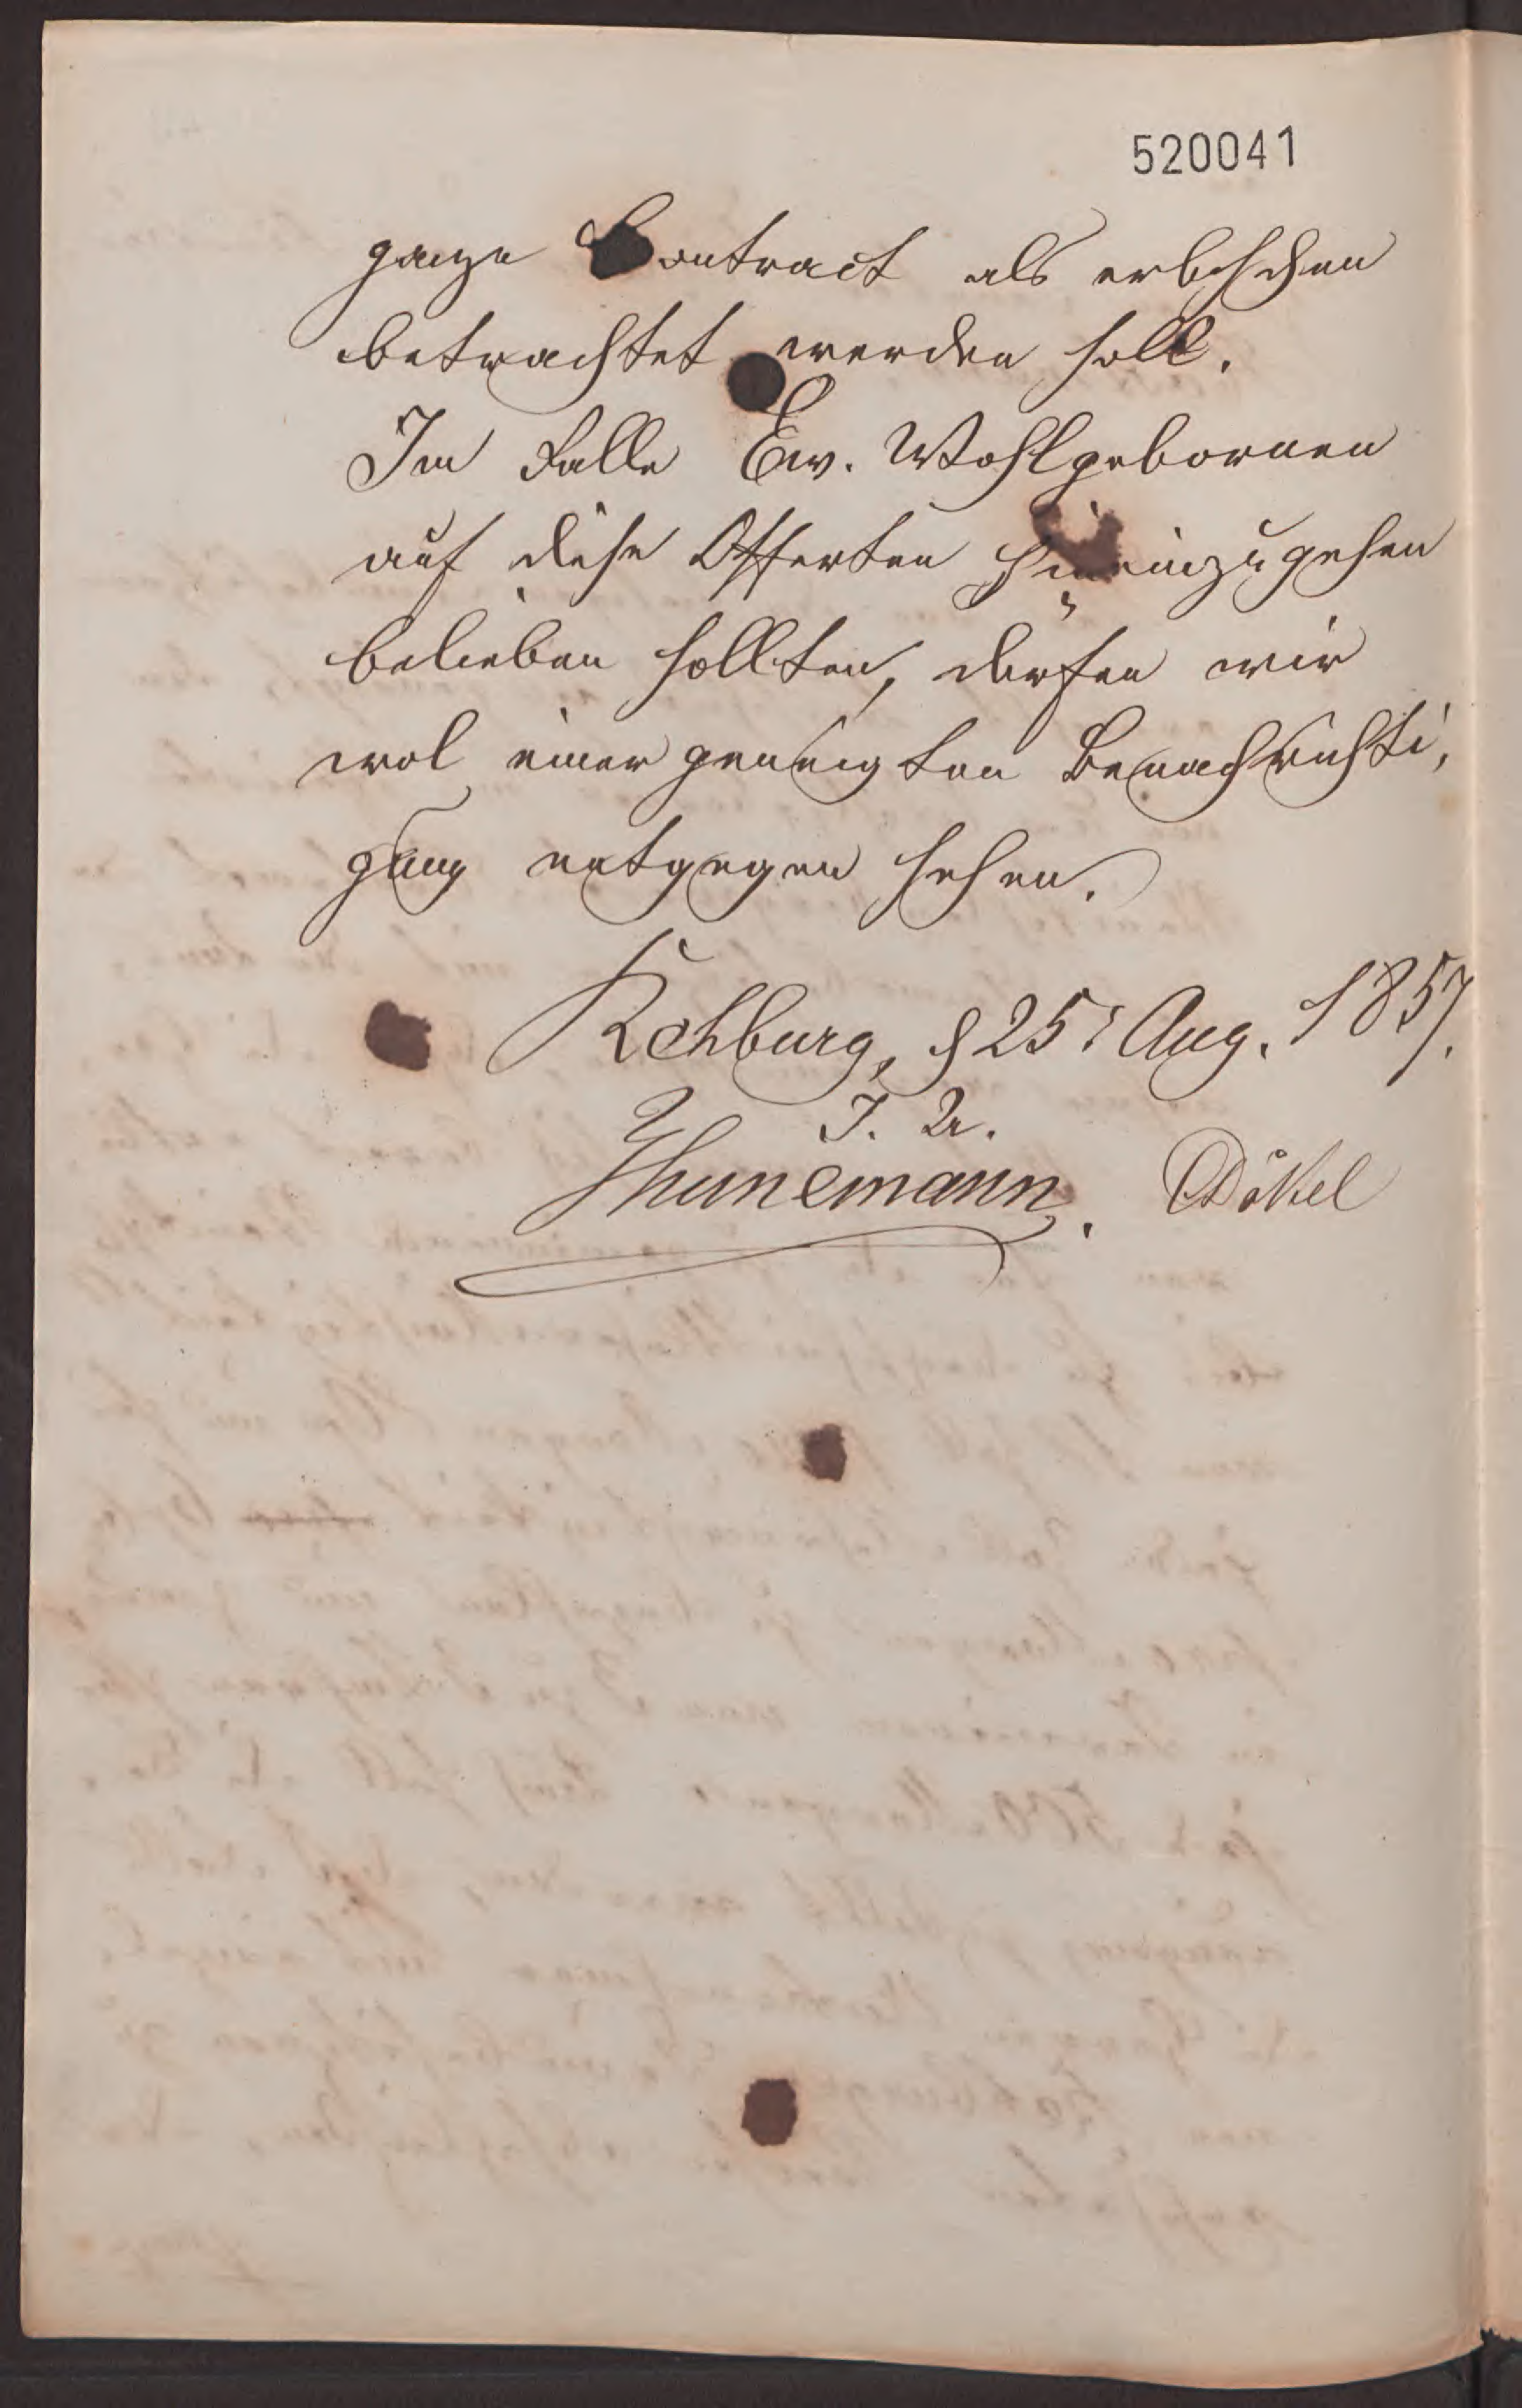 520041
ganze Contract als erloschen
betrachtet werden soll.
Im Falle Ew. Wohlgebornen
auf diese Offerten hineinzugehen
belieben sollten, dürfen wir
wol einer geneigten Benachrichti,
gung entgegen sehen.
Rehburg, d 25t Aug. 1857.
J. A.
Thunemann. Däkel